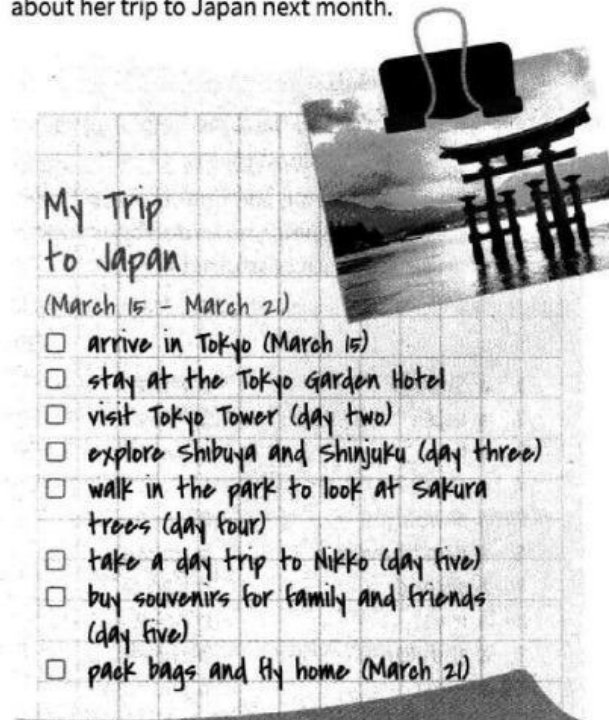 about her trip to Japan next month.
My Trip
to Japan
(March 15 - March 21)
arrive in Tokyo (March 15)
stay at the Tokyo Garden Hotel
visit Tokyo Tower (day two)
explore Shibuya and Shinjuku (day three)
walk in the park to look at sakura
trees (day four)
take a day trip to Nikko (day five)
buy souvenirs for family and friends
(day five)
pack bags and fly home (March 21)